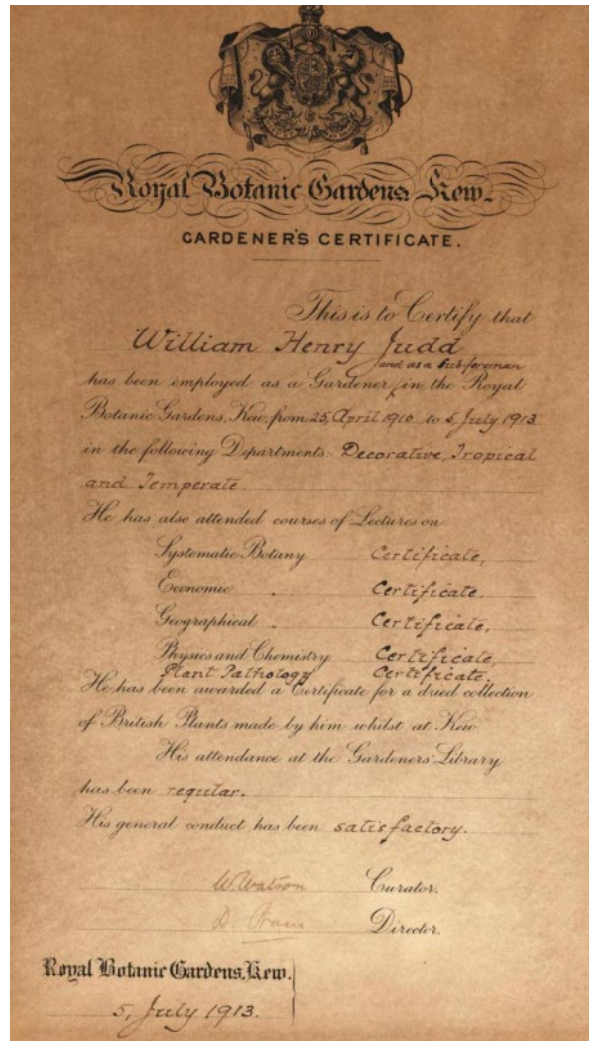 Royal Botanic Gardens, Kew.
GARDENER'S CERTIFICATE.
This is to Certify that
William Henry Judd
and as a Sub-foreman
has been employed as a Gardener in the Royal
Botanic Gardens, Kew, from 25, April 1910 to 5, July 1913
in the following Departments: Decorative, Tropical
and Temperate.
He has also attended courses of Lectures on
Systematic Botany Certificate,
Economic " Certificate.
Geographical " Certificate,
Physics and Chemistry Certificate,
Plant Pathology Certificate.
He has been awarded a Certificate for a dried collection
of British Plants made by him whilst at Kew
His attendance at the Gardeners' Library
has been regular.
His general conduct has been satisfactory.
W. Watson Curator.
D. Prain Director.
Royal Botanic Gardens, Kew.
5, July 1913.